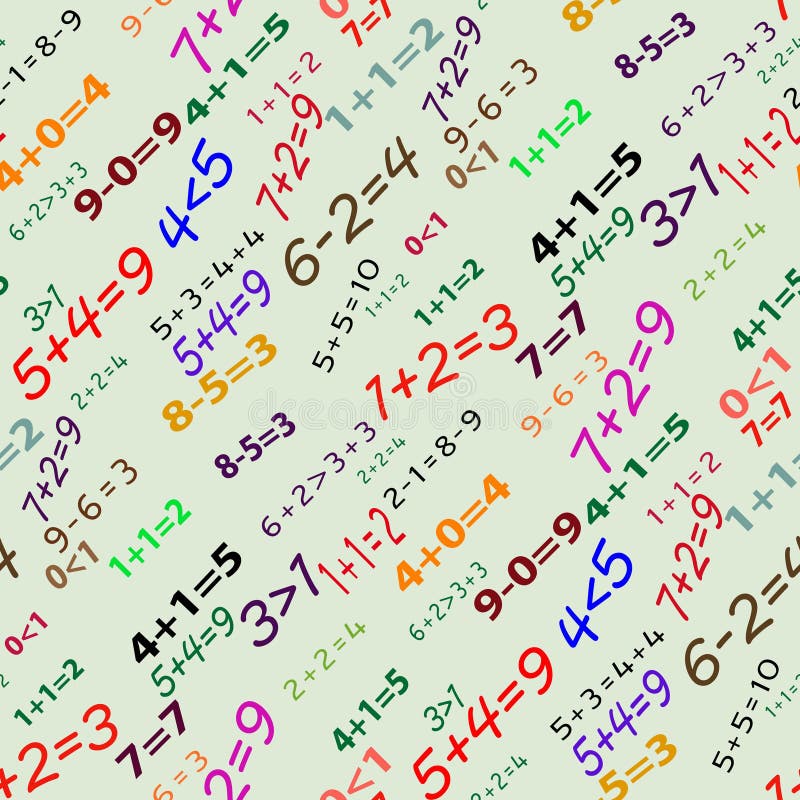 2-1=8-9
9-6
7+2=9
4+1=5
7=7
1+1=2
7+2=9
8-5=3
6+2>3+3
2+2=4
4+0=4
9-0=9
1+1=2
7+2=9
9-6=3
0<1
1+1=2
6+2>3+3
4<5
6-2=4
4+1=5
3>1
1+1=2
5+4=9
5+3=4+4
0<1
5+4=9
2+2=4
3>1
5+4=9
5+5=10
1+1=2
1+1=2
4+1=5
2+2=4
8-5=3
1+2=3
7=7
9-6=3
7+2=9
0<1
7=7
=2
7+2=9
8-5=3
6+2>3+3
2+2=4
2-1=8-9
4+1=5
1+1=2
1+1
9-6=3
0<1
1+1=2
4+0=4
9-0=9
7+2=9
4+1=5
3>1
1+1=2
6+2>3+3
4<5
6-2=4
0<1
5+4=9
2+2=4
5+4=9
5+3=4+4
5+4=9
5+5=10
1+1=2
1+1=2
4+1=5
3>1
+2=3
7=7
9-6=3
2=9
0<1
2+2=4
8-5=3
dreamstime